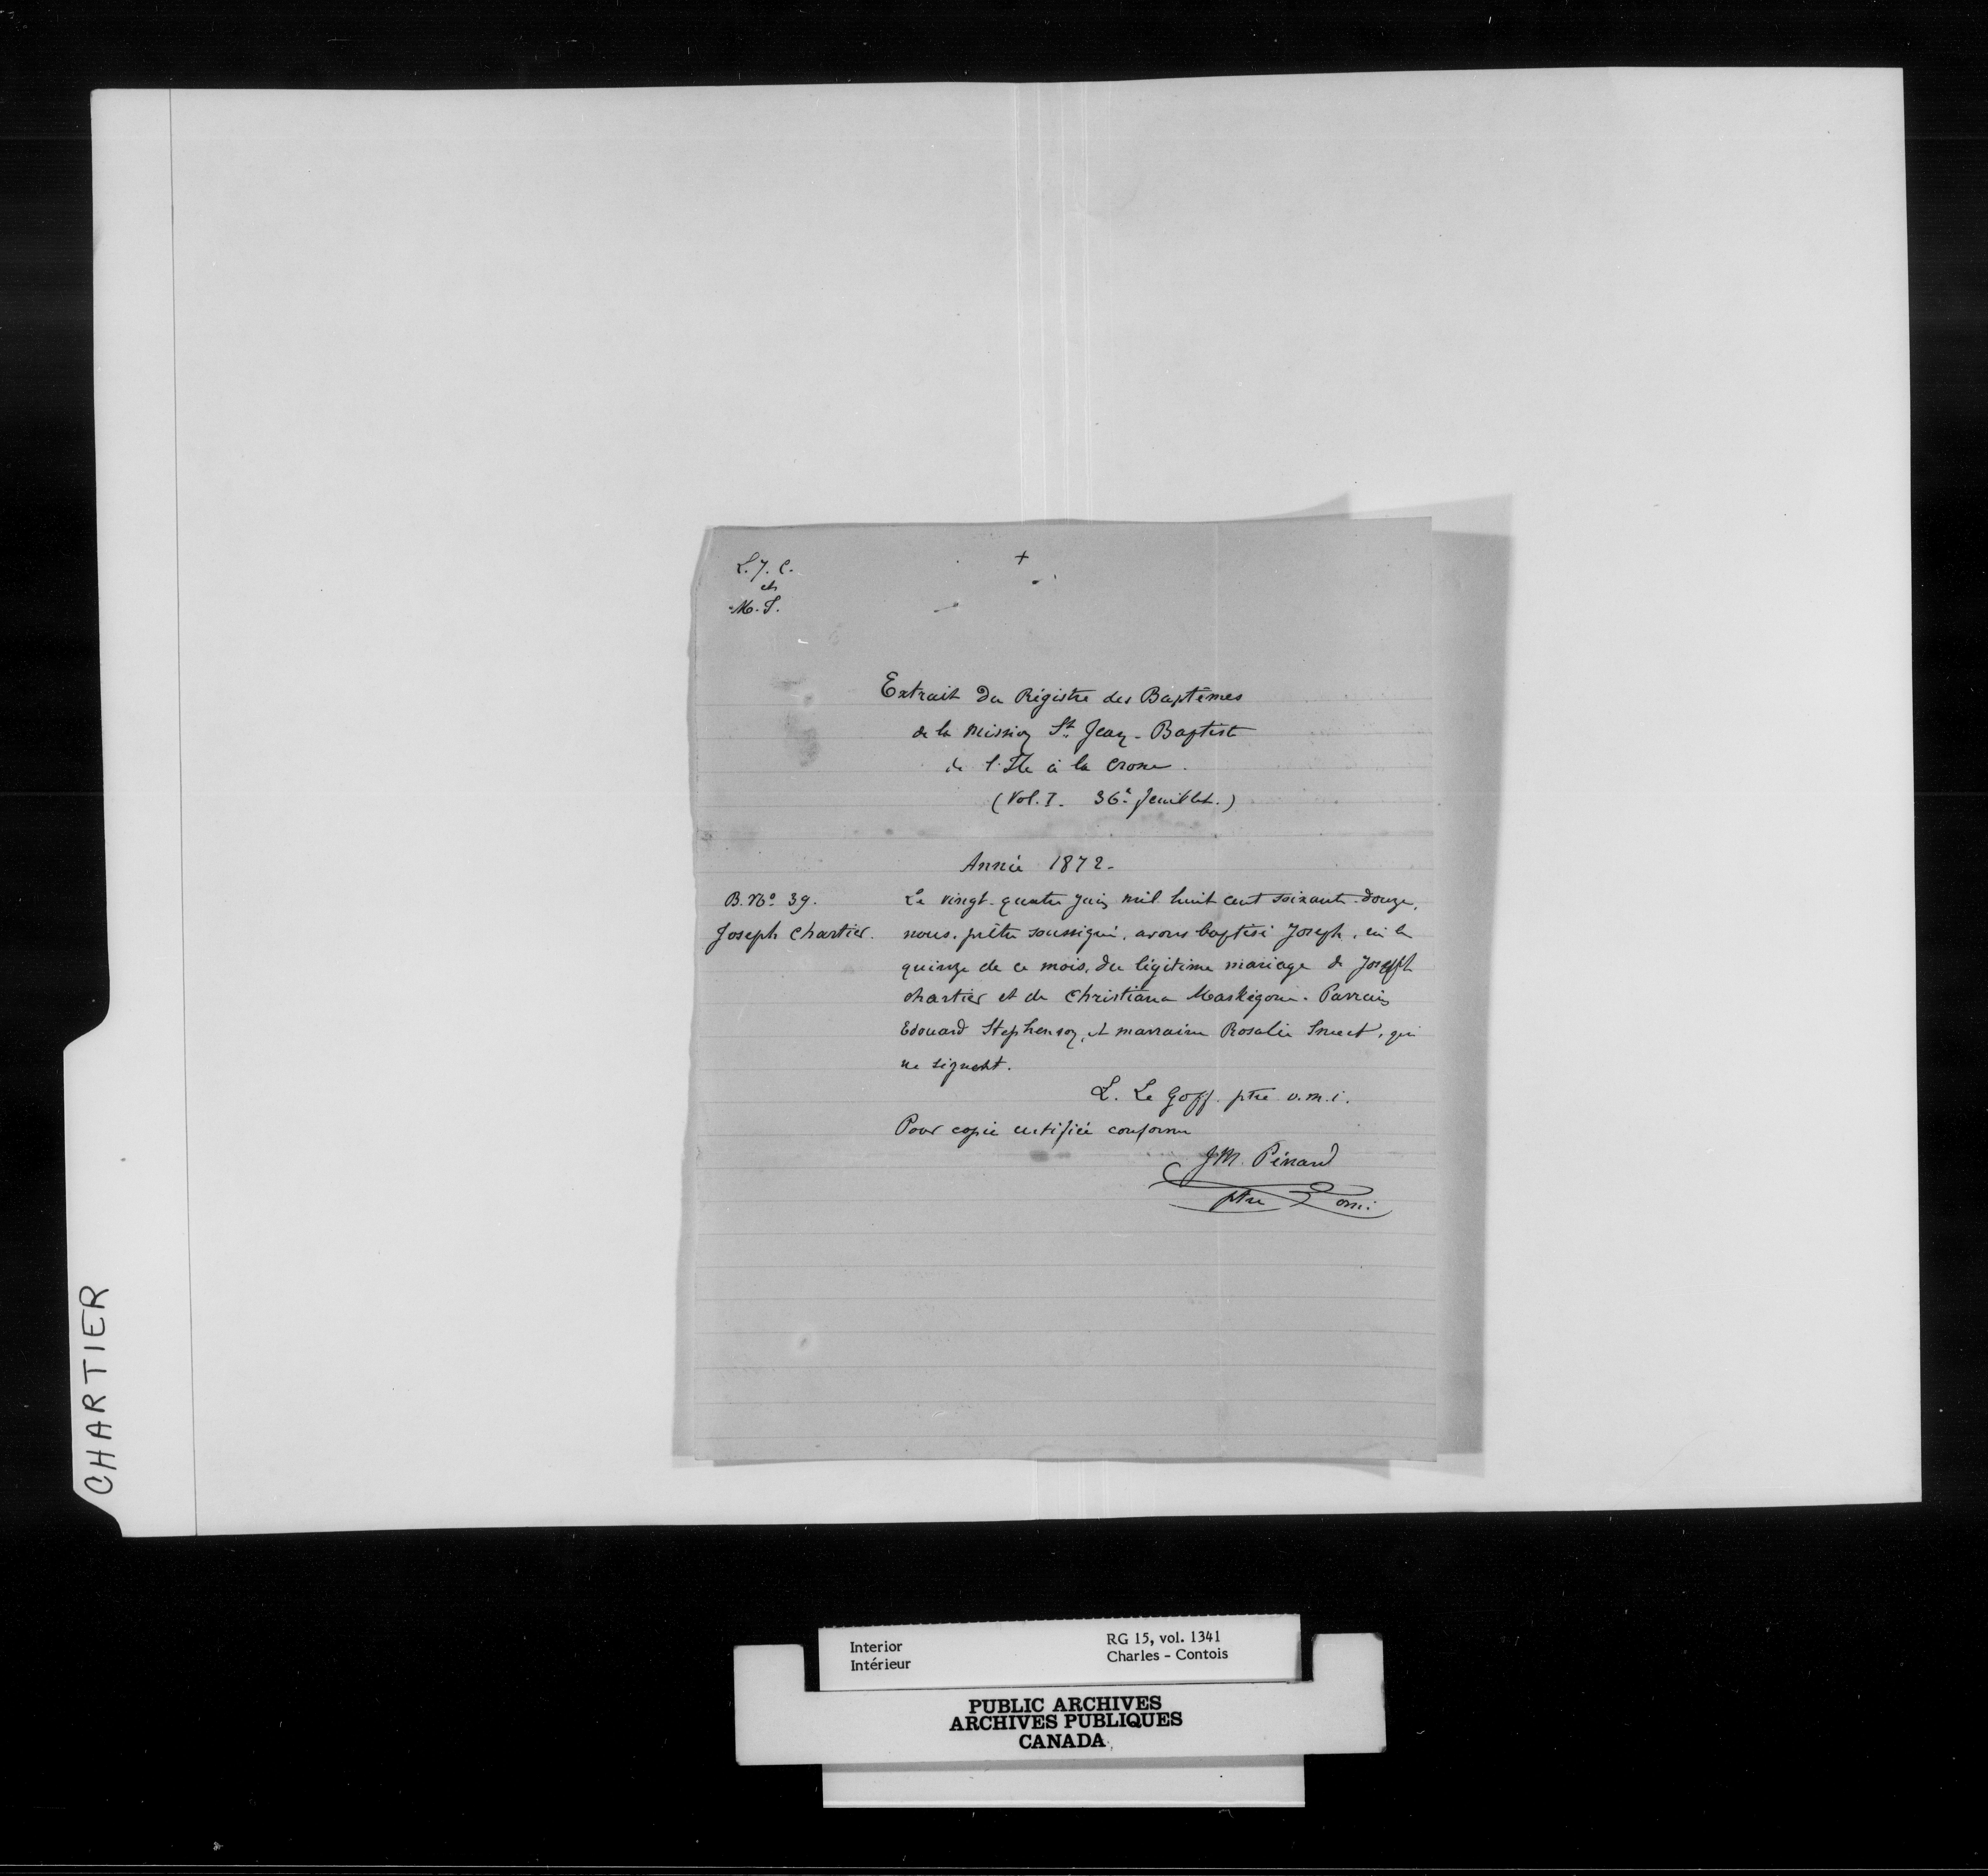 L. J. C.
et
M. I.
+
Extrait du Régistre des Baptêmes
de la Mission St. Jean-Baptiste
de l'Ile à la Crosse.
(Vol. I. 36e feuillet.)
Année 1872-
B. No. 39.
Joseph Chartier.
Le vingt-quatre juin mil huit cent soixante-douze,
nous, prêtre soussigné, avons baptisé Joseph, né le
quinze de ce mois, du légitime mariage de Joseph
Chartier et de Christiana Maskégone. Parrain
Edouard Stephenson, et marraine Rosalie, qui
ne signent.
L. Le Goff. ptre o.m.i.
Pour copie certifiée conforme
J M. Pénard
ptre omi.
CHARTIER
Interior
Intérieur
RG 15, vol. 1341
Charles - Contois
PUBLIC ARCHIVES
ARCHIVES PUBLIQUES
CANADA